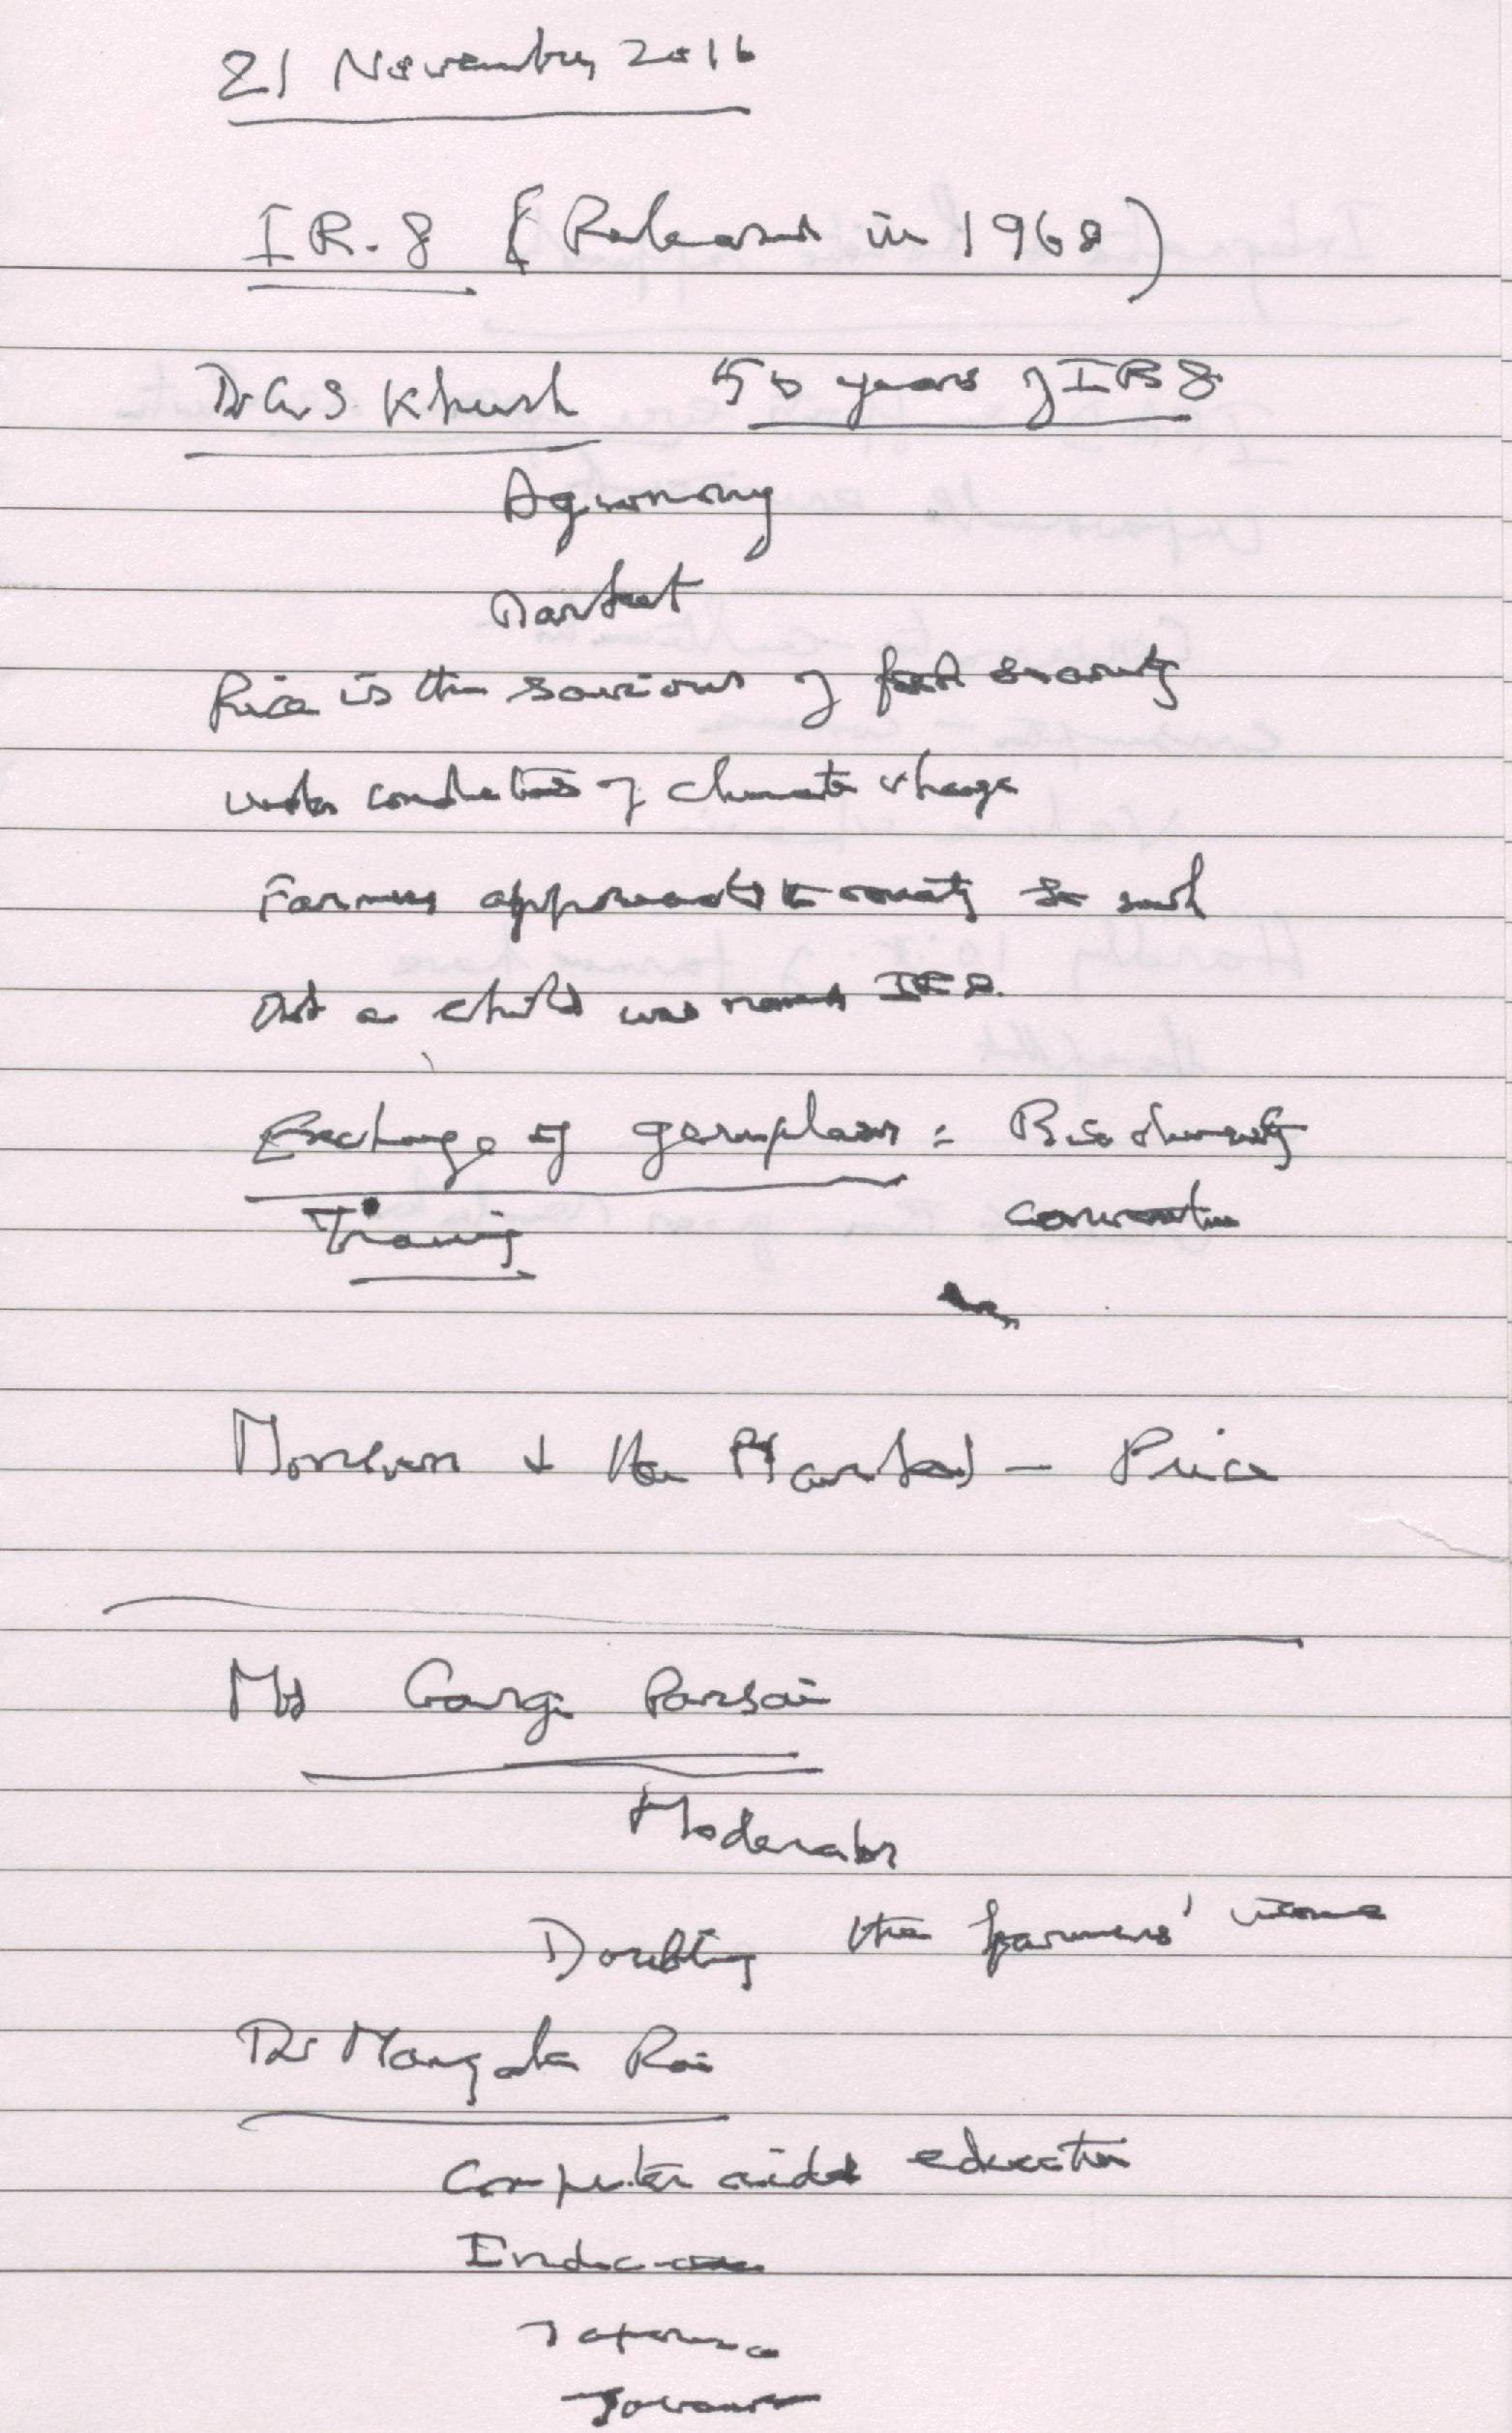 21 November 2016
IR-8 (Released in 1968)
Dr G S Khush 50 years of IR8
Agronomy
Market
Rice is the saviour of food security
under conditions of climate change
Farmers appreciate to such
that a child was named IR8.
Exchange of germplasm : Biodiversity
Training convention
Monsoon & the Market – Price
Ms Gargi Parsai
Moderator
Doubling the farmers' income
Dr Mangala Rai
Computer aided education
Indica
Japonica
Javanica